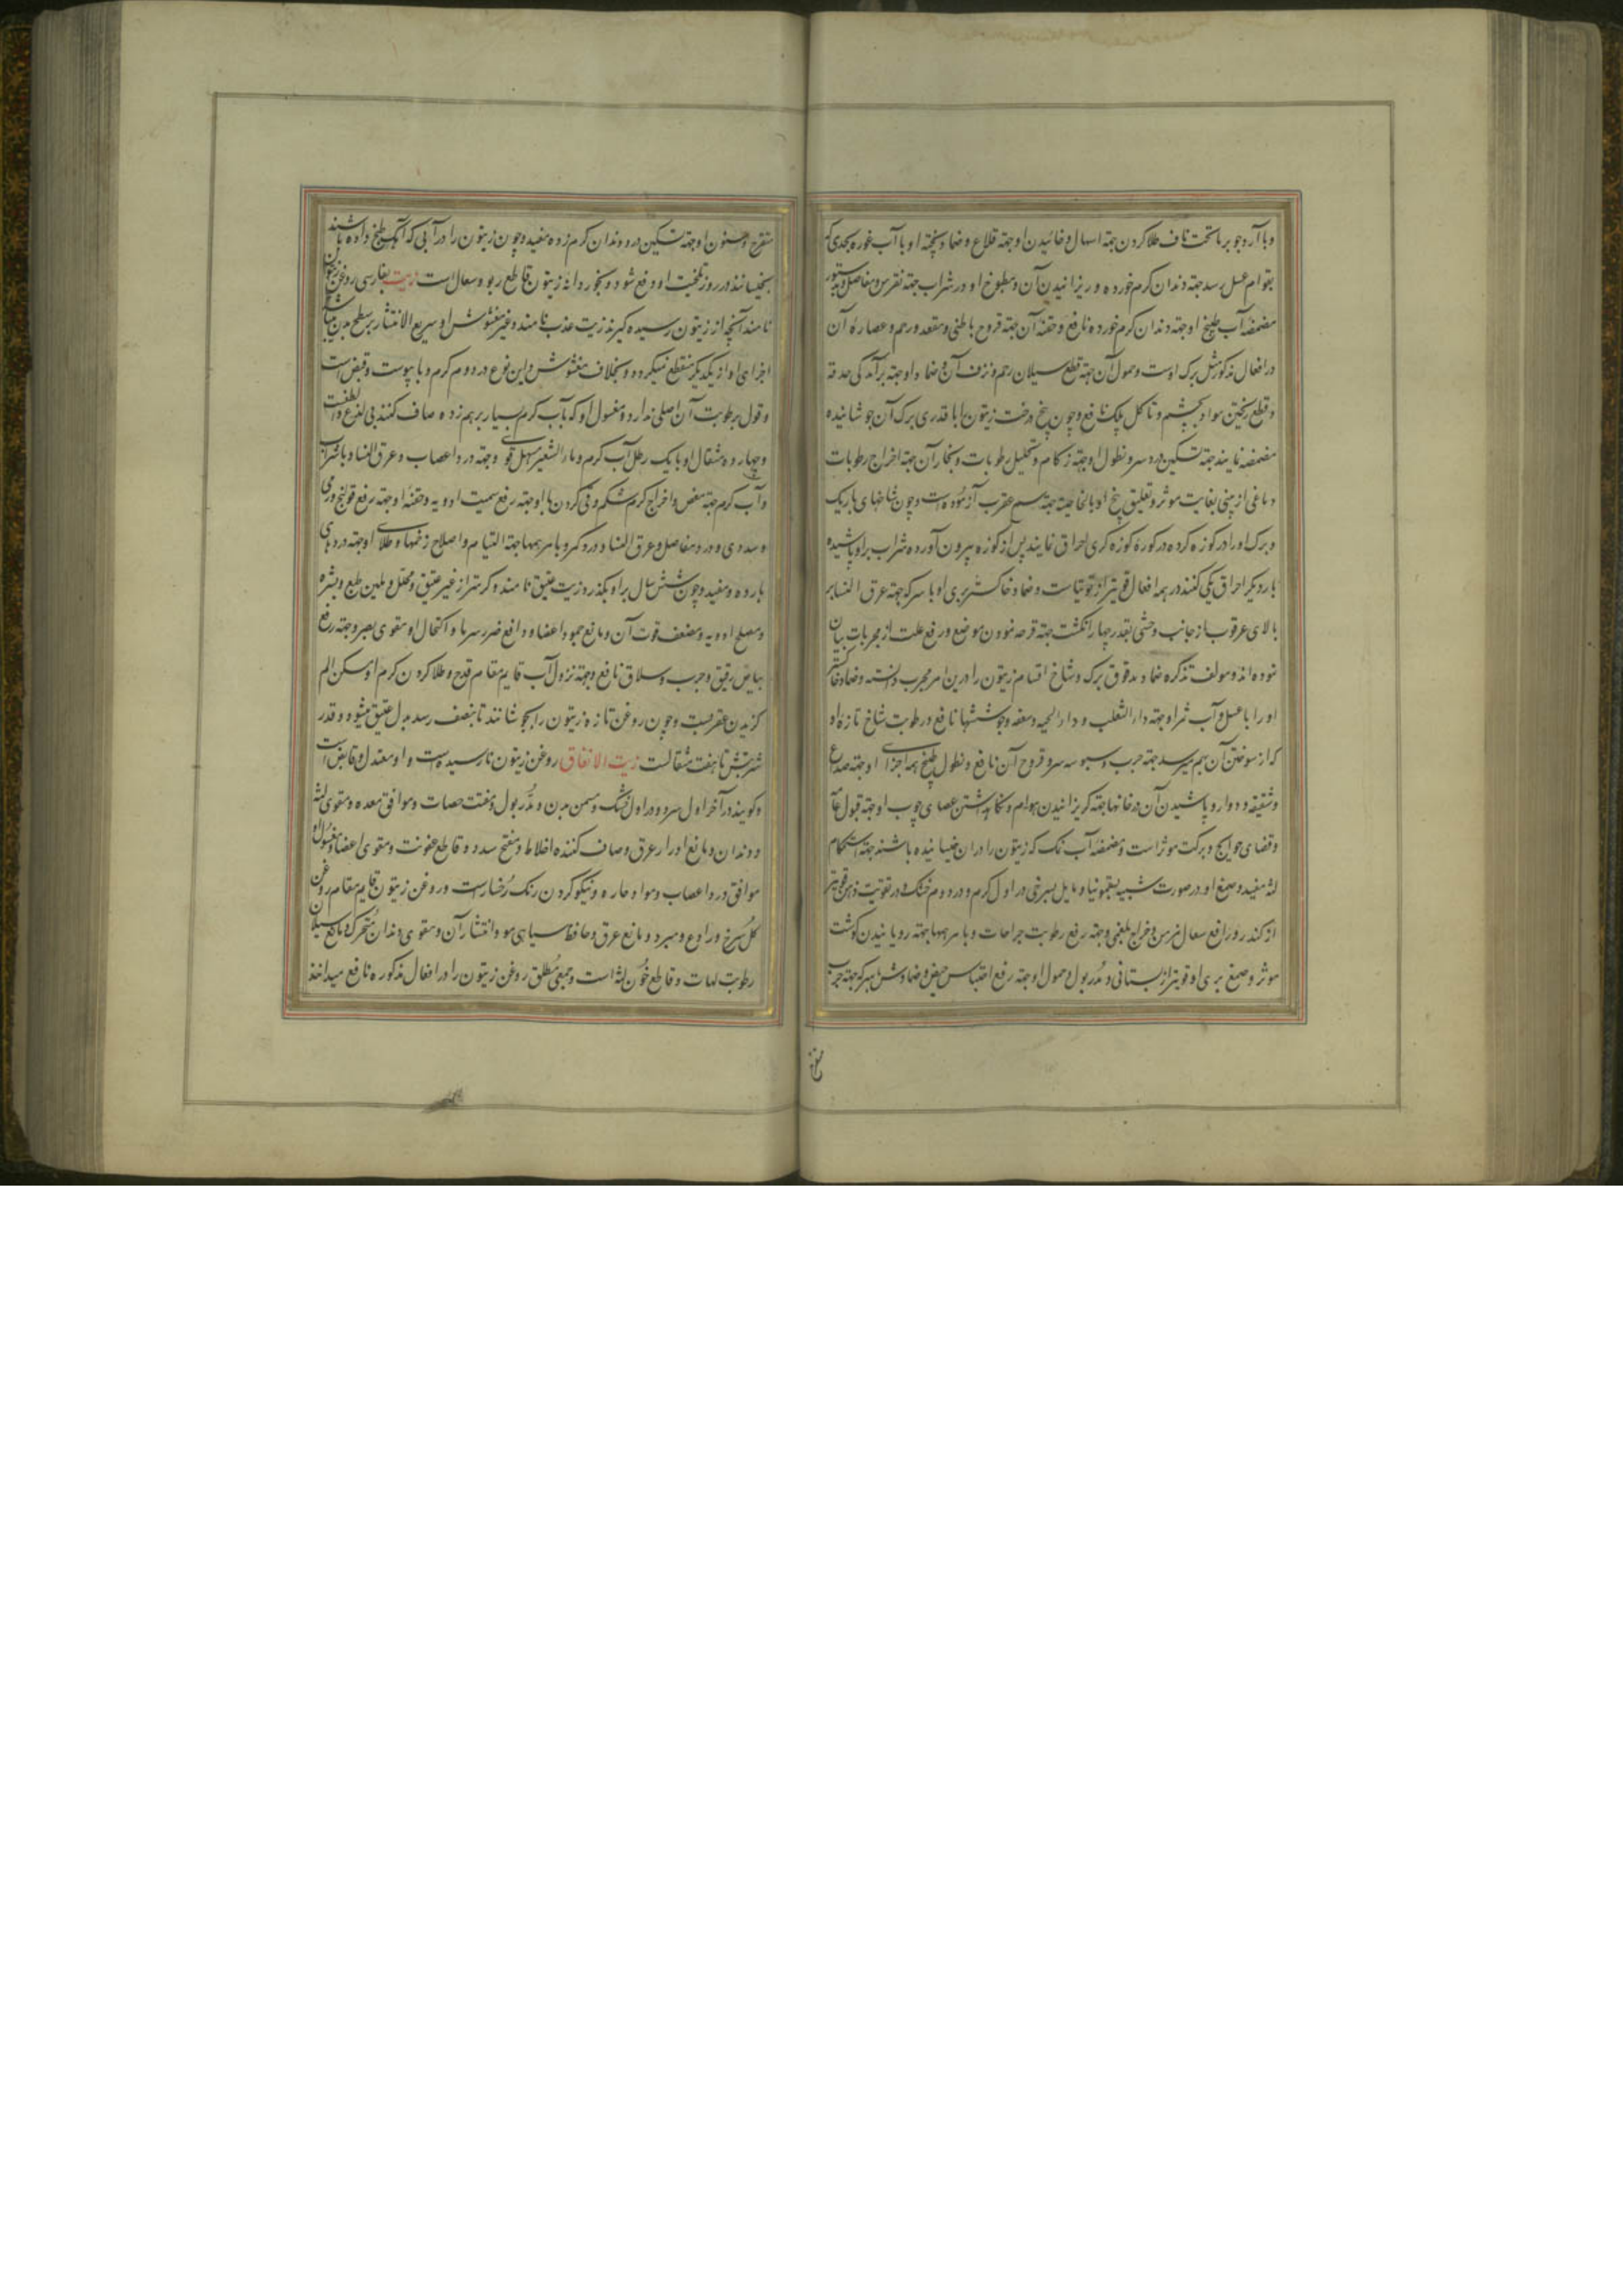 وبا آرد جو بر ماتحت ناف طلا کردن جهته اسهال و خائیدن او جهته قلاع و ضماد پخته او با آب غوره بحدی که
بقوام عسل رسد جهته دندان کرم خورده و ریزانیدن آن و مطبوخ او در شراب جهته نقرس و مفاصل و بدستور
مضمضه آب طبیخ او جهته دندان کرم خورده نافع و حقنه آن جهته قروح باطنی و مقعد و رحم و عصاره آن
در افعال مذکور مثل برک اوست و حمول آن جهته قطع سیلان رحم و نزف آن و ضماد او جهته برآمدکی حدقه
و قطع ریختن مواد بچشم و تاکل پلک نافع و چون بیخ درخت زیتون را با قدری برک آن جوشانیده
مضمضه نمایند جهته تسکین درد سر و نطول او جهته زکام و تحلیل رطوبات و بخار آن جهته اخراج رطوبات
دماغی از بینی بغایت موثر و تعلیق بیخ او بالخاصیته جهته سم عقرب آزموده است و چون شاخهای باریک
و برک او را در کوزه کرده در کوره کوزه کری احراق نمایند پس از کوزه بیرون آورده شراب بر او پاشیده
بار دیکر احراق یکی کنند در همه افعال قویتر از توتیاست و ضماد خاکستر بری او با سرکه جهته عرق النسا بر
بالای عرقوب از جانب وحشی بقدر چهار انکشت جهته قرحه نمودن موضع و رفع علت از مجربات بیان
نموده اند و مولف تذکره ضماد مدقوق برک و شاخ اقسام زیتون را درین امر مجرب دانسته و ضماد خاکستر
او را با عسل و آب ثمر او جهته داء الثعلب و داء الحیه و سعفه و جوششها نافع و رطوبت شاخ تازه او
که از سوختن آن بهم میرسد جهته جرب و سبوسه سر و قروح آن نافع و نطول طبیخ همه اجزای او جهته صداع
و شقیقه و دوار و پاشیدن آن در خانها جهته کریزانیدن هوام و نکاهداشتن عصای چوب او جهته قبول عامه
و قضای حوایج و برکت موثر است و مضمضه آب نمک که زیتون را در ان خیسانیده باشند جهته استحکام
لثه مفید و صمغ او در صورت شبیه بسقمونیا و مایل بسرخی در اول کرم و در دوم خشک و در تقویت ذهن قویتر
از کندر و رافع سعال مزمن و خراج بلغمی و جهته رفع رطوبت جراحات و با مرهمها جهته رویانیدن کوشت
موثر و صمغ بری او قویتر از بستانی و مدر بول و حمول او جهته رفع احتباس حیض و ضمادش با سرکه جهته جرب
متقرح و سنون او جهته تسکین درد دندان کرم زده مفید و چون زیتون را در آبی که آهک طبخ داده باشند
بخیسانند در روز تلخیت او رفع شود و بخور دانه زیتون قاطع ربو و سعال است زیت بفارسی روغن زیتون
نامند آنچه از زیتون رسیده کیرند زیت عذب نامند و غیر مغشوش او سریع الانتشار بر سطح بدن میباشد
اجزای او از یکدیکر منقطع نمیکردد و بخلاف مغشوش و این نوع در دوم کرم و با یبوست و قبض است
و قول برطوبت آن اصلی ندارد و مغسول او که بآب کرم بسیار برهم زده صاف کنند بی لذع و الطفست
و چهارده مثقال او با یک رطل آب کرم و ماء الشعیر مسهل قوی و جهته درد اعصاب و عرق النسا و با شراب
و آب کرم جهته مغص و اخراج کرم شکم و قی کردن با او جهته رفع سمیت ادویه و حقنه او جهته رفع قولنج ورمی
و سددی و درد مفاصل و عرق النسا و درد کمر و با مرهمها جهته التیام و اصلاح زخمها و طلای او جهته دردهای
بارده مفید و چون شش سال بر او بکذرد زیت عتیق نامند و کرمتر از غیر عتیق و محلل و ملین طبع و بشره
و مصلح ادویه و مضعف قوت آن و مانع جمود اعضا و دافع ضرر سرما و اکتحال او مقوی بصر و جهته رفع
بیاض رقیق و جرب و سلاق نافع و جهته نزول آب قایم مقام قدح و طلا کردن کرم او مسکن الم
کزیدن عقربست و چون روغن تازه زیتون را بجوشانند تا بنصف رسد بدل عتیق میشود و قدر
شربتش تا هفت مثقالست زیت الانفاق روغن زیتون نارسیده است و او معتدل و قابض است
و کویند در آخر اول سرد و در اول خشک و مسمن بدن و مدر بول و مفتت حصات و موافق معده و مقوی لثه
و دندان و مانع ادرار عرق و صاف کننده اخلاط و مفتح سدد و قاطع عفونت و مقوی اعضا و مغسول او
موافق درد اعصاب و مواد حاره و نیکو کردن رنک رخسارست و روغن زیتون قایم مقام روغن
کل سرخ و رادع و مبرد و مانع عرق و حافظ سیاهی مو و انتشار آن و مقوی دندان متحرک و مانع سیلان
رطوبت لهات و قاطع خون لثه است و جمعی مطلق روغن زیتون را در افعال مذکوره نافع میدانند